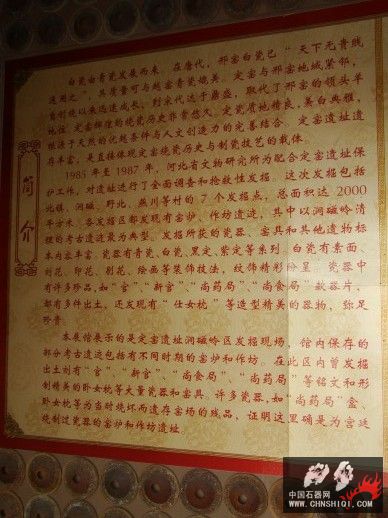 简介
白瓷由青瓷发展而来。在唐代，邢窑白瓷已“天下无贵贱
通用之”，其质量可与越窑青瓷媲美。定窑与邢窑地域紧邻，
自创烧以来迅速成长，到宋代达于鼎盛，取代了邢窑的领头羊
地位。定窑辉煌的烧瓷历史非常悠久，定瓷质地精良，美白典雅，
根源于天然的优越条件与人文创造力的完善结合。定窑遗址遗
存丰富，是直接体现定窑烧瓷历史与制瓷技艺的载体。
1985年至1987年，河北省文物研究所为配合定窑遗址保
护工作，对遗址进行了全面调查和抢救性发掘。这次发掘包括
北镇、涧磁、野北、燕川等村的7个发掘点，总面积达2000
平方米。各发掘区都发现有窑炉、作坊遗迹，其中以涧磁岭清
理的考古遗迹最为典型。发掘所获的瓷器、窑具和其他遗物标
本内容丰富。瓷器有青瓷、白瓷、黑定、紫定等系列。白瓷有素面、
刻花、印花、剔花、绘画等装饰技法，纹饰精彩纷呈。瓷器中
有许多珍品，如“官”、“新官”、“尚药局”、“尚食局”款器片，
都有多件出土，还发现有“仕女枕”等造型精美的器物，弥足
珍贵。
本展馆展示的是定窑遗址涧磁岭区发掘现场，馆内保存的
部分考古遗迹包括有不同时期的窑炉和作坊。在此区内曾发掘
出土刻有“官”、“新官”、“尚食局”、“尚药局”等铭文和形
制精美的卧女枕等大量瓷器和窑具，许多瓷器，如“尚药局”盒、
卧女枕等为当时烧坏而遗存窑场的残品，证明这里确是为宫廷
烧制过瓷器的窑炉和作坊遗址。
中国石器网
WWW.CHNSHIQI.COM